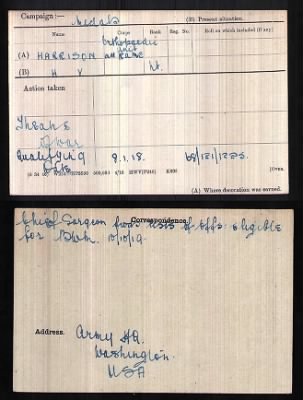 Campaign :— Medals
(B) Present situation.
Name. Corps Rank Reg. No. Roll on which included (if any)
Orthopaedic
Unit
(A) HARRISON
(B) H Y Lt.
Action taken
Theatre
of War
Qualifying 9.1.18. 68/121/1225
Date
[Over.
(A) Where decoration was earned.
Correspondence.
Chief Surgeon fwds lists of Offs. eligible
for BWM. 10/10/19.
Address. Army HQ.
Washington.
USA